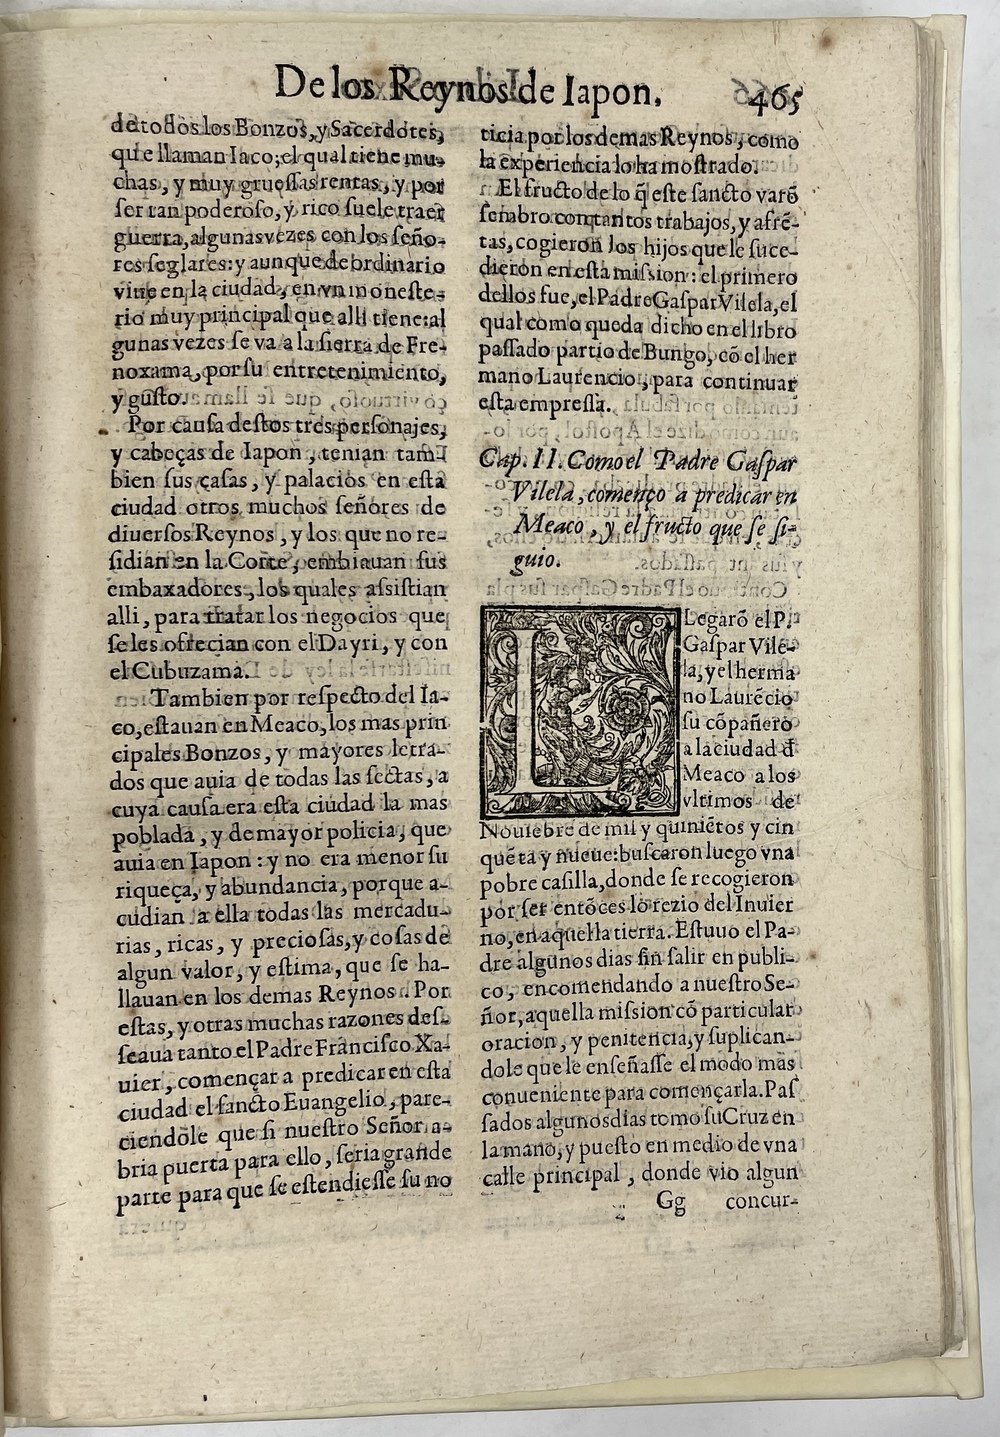 De los Reynos de Iapon. 465
de todos los Bonzos, y Sacerdotes,
que llaman Iaco; el qual tiene mu-
chas, y muy gruessas rentas, y por
ser tan poderoso, y rico suele traer
guerra, algunas vezes con los seño-
res seglares: y aunque de ordinario
viue en la ciudad, en vn moneste-
rio muy principal que alli tiene: al
gunas vezes se va a la sierra de Fre-
noxama, por su entretenimiento,
y gusto.
Por causa destos tres personajes,
y cabeças de Iapon, tenian tam-
bien sus casas, y palacios en esta
ciudad otros muchos señores de
diuersos Reynos, y los que no re-
sidian en la Corte, embiauan sus
embaxadores, los quales assistian
alli, para tratar los negocios que
se les ofrecian con el Dayri, y con
el Cubuzama.
Tambien por respecto del Ia-
co, estauan en Meaco, los mas prin
cipales Bonzos, y mayores letra-
dos que auia de todas las sectas, a
cuya causa era esta ciudad la mas
poblada, y de mayor policia, que
auia en Iapon: y no era menor su
riqueça, y abundancia, porque a-
cudian a ella todas las mercadu-
rias, ricas, y preciosas, y cosas de
algun valor, y estima, que se ha-
llauan en los demas Reynos. Por
estas, y otras muchas razones des-
seaua tanto el Padre Francisco Xa-
uier, començar a predicar en esta
ciudad el sancto Euangelio, pare-
ciendole que si nuestro Señor a-
bria puerta para ello, seria grande
parte para que se estendiesse su no
ticia por los demas Reynos, como
la experiencia lo ha mostrado.
El fructo de lo q̃ este sancto varõ
sembro con tantos trabajos, y afrẽ-
tas, cogieron los hijos que le suce-
dieron en esta mission: el primero
dellos fue, el Padre Gaspar Vilela, el
qual como queda dicho en el libro
passado partio de Bungo, cõ el her
mano Laurencio, para continuar
esta empressa.
Cap. II. Como el Padre Gaspar
Vilela, començo a predicar en
Meaco, y el fructo que se si-
guio.
LLegarõ el P.
Gaspar Vile-
la, y el herma
no Laurẽcio
su cõpañero
a la ciudad đ
Meaco a los
vltimos de
Nouiẽbre de mil y quiniẽtos y cin
quẽta y nueue: buscaron luego vna
pobre casilla, donde se recogieron
por ser entõces lo rezio del Inuier
no, en aquella tierra. Estuuo el Pa-
dre algunos dias sin salir en publi-
co, encomendando a nuestro Se-
ñor, aquella mission cõ particular
oracion, y penitencia, y suplican-
dole que le enseñasse el modo mas
conueniente para començarla. Pas
sados algunos dias tomo su Cruz en
la mano, y puesto en medio de vna
calle principal, donde vio algun
Gg concur-